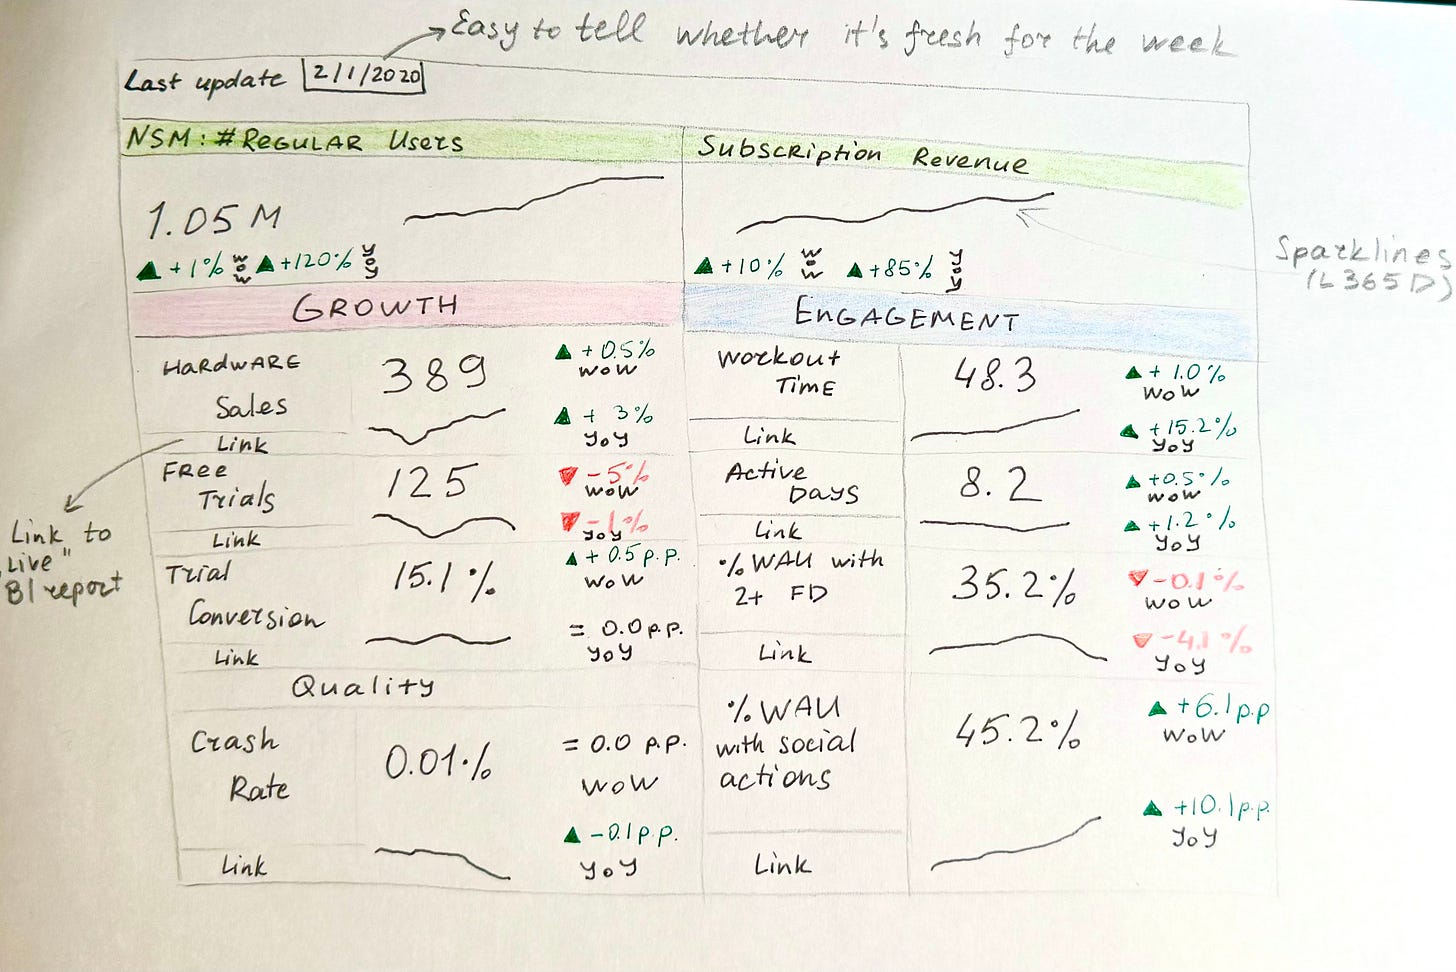 Easy to tell whether it's fresh for the week
Last update 2/1/2020
NSM: # REGULAR Users
1.05 M
▲ +1% WoW ▲ +120% YoY
Subscription Revenue
▲ +10% WoW ▲ +85% YoY
Sparklines
(L365D)
GROWTH
HARDWARE
Sales
Link
389
▲ + 0.5%
WoW
▲ + 3%
YoY
Link to
"Live"
BI report
FRee
Trials
Link
125
▼ -5%
WoW
▼ -1%
YoY
Trial
Conversion
Link
15.1%
▲ + 0.5 p.p.
WoW
= 0.0 p.p.
YoY
Quality
Crash
Rate
Link
0.01%
= 0.0 p.p.
WoW
▲ -0.1 p.p.
YoY
EnGAGEMENT
Workout
TiME
Link
48.3
▲ + 1.0%
WoW
▲ +15.2%
YoY
Active
Days
Link
8.2
▲ +0.5%
WoW
▲ +1.2%
YoY
% WAU with
2+ FD
Link
35.2%
▼ -0.1%
WoW
▼ -4.1%
YoY
% WAU
with social
actions
Link
45.2%
▲ +6.1 p.p
WoW
▲ +10.1 p.p.
YoY